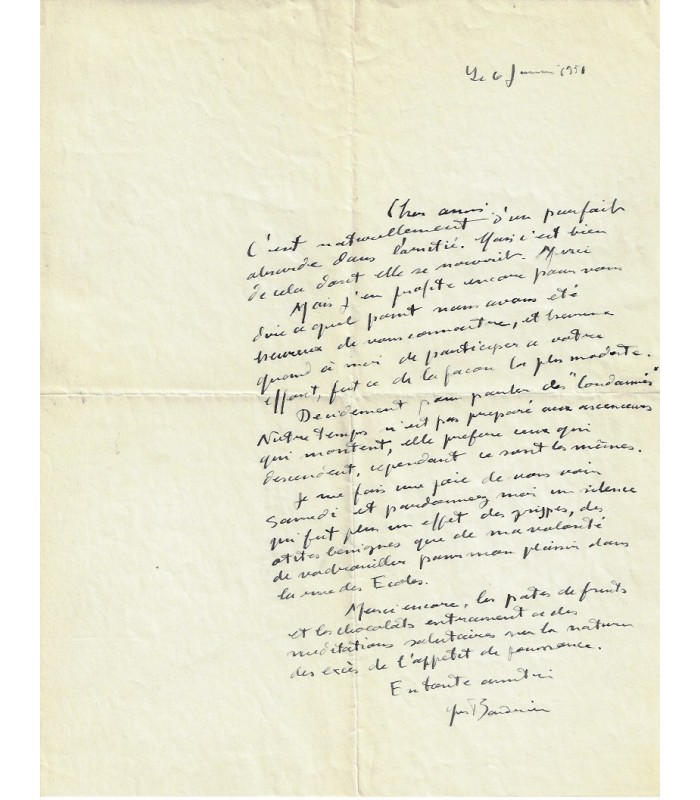 Le 6 Janvier 1951
Chers amis.
C'est naturellement d'un parfait
absurde dans l'amitié. Mais c'est bien
de cela dont elle se nourrit. Merci
Mais j'en profite encore pour vous
dire a quel point nous avons été
heureux de vous connaitre, et heureux
quand à moi de participer a votre
effort, fut ce de la façon la plus modeste.
Decidement pour parler des "Condamnés"
Notre temps n'est pas preparé aux ascenceurs
qui montent, elle prefere ceux qui
descendent, cependant ce sont les mêmes.
Je me fais une joie de vous voir
Samedi et pardonnez moi un silence
qui fut plus un effet des grippes, des
otites benignes que de ma volonté
de vadrouiller pour mon plaisir dans
la rue des Ecoles.
Merci encore, les pates de fruits
et les chocolats entrainent a des
meditations salutaires sur la nature
des excès de l'appetit de puissance.
En toute amitié
Yves Baudrier